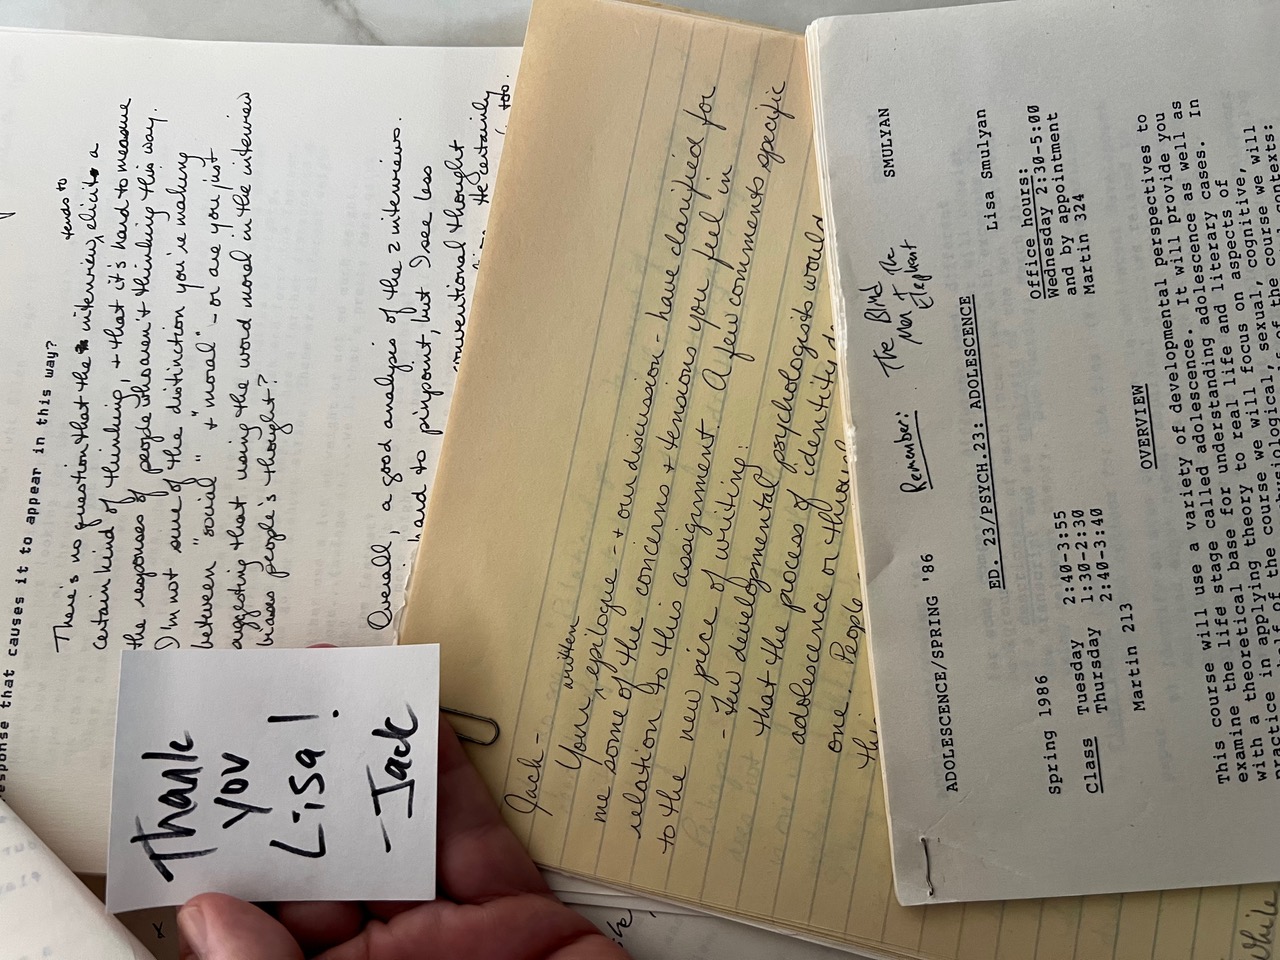 sponse that causes it to appear in this way?
tends to
There's no question that the interview, elicit a
certain kind of thinking, + that it's hard to measure
the responses of people who aren't thinking this way.
I'm not sure of the distinction you're making
between "social" + "moral" - or are you just
suggesting that using the word moral in the interview
biases people's thought?
Overall, a good analysis of the 2 interviews.
hard to pinpoint, but I see less
conventional thought
He certainly
too.
Thank
you
Lisa!
-Jack
Jack-
written
Your epilogue - + our discussion - have clarified for
me some of the concerns + tensions you feel in
relation to this assignment. A few comments specific
to the new piece of writing:
- Few developmental psychologists would
that the process of identity
adolescence or through
one. People
this
While
Remember: The Blind
Men + The
Elephant
SMULYAN
ADOLESCENCE/SPRING '86
ED. 23/PSYCH.23: ADOLESCENCE
Lisa Smulyan
Spring 1986
Office hours:
Wednesday 2:30-5:00
and by appointment
Martin 324
Class Tuesday 2:40-3:55
Thursday 1:30-2:30
2:40-3:40
Martin 213
OVERVIEW
This course will use a variety of developmental perspectives to
examine the life stage called adolescence. It will provide you
with a theoretical base for understanding adolescence as well as
practice in applying theory to real life and literary cases. In
half of the course we will focus on aspects of
physiological, sexual, cognitive,
of the course we will
contexts: